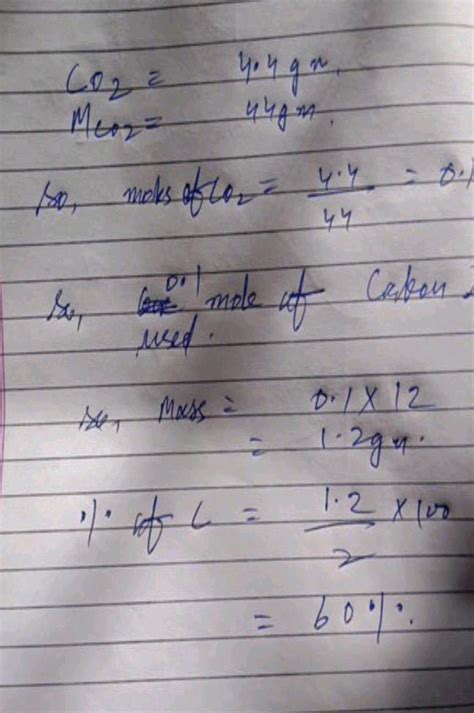 CO2 = 4.4 gm.
MCO2 = 44gm.
so, moles of CO2 = 4.4 / 44 = 0.1
So, 0.1 mole of Carbon is
used.
so, Mass = 0.1 X 12
= 1.2gm.
% of C = 1.2 / 2 X 100
= 60 %.